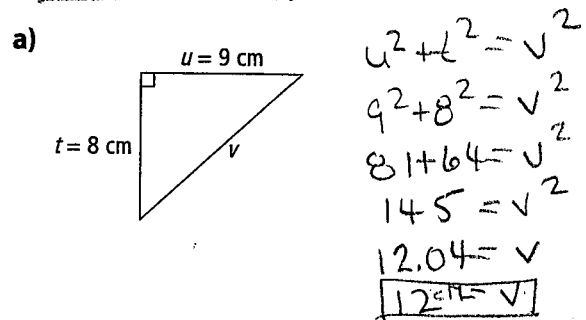 a)
u = 9 cm
t = 8 cm
v
u² + t² = v²
9² + 8² = v²
81 + 64 = v²
145 = v²
12.04 = v
12 cm = v